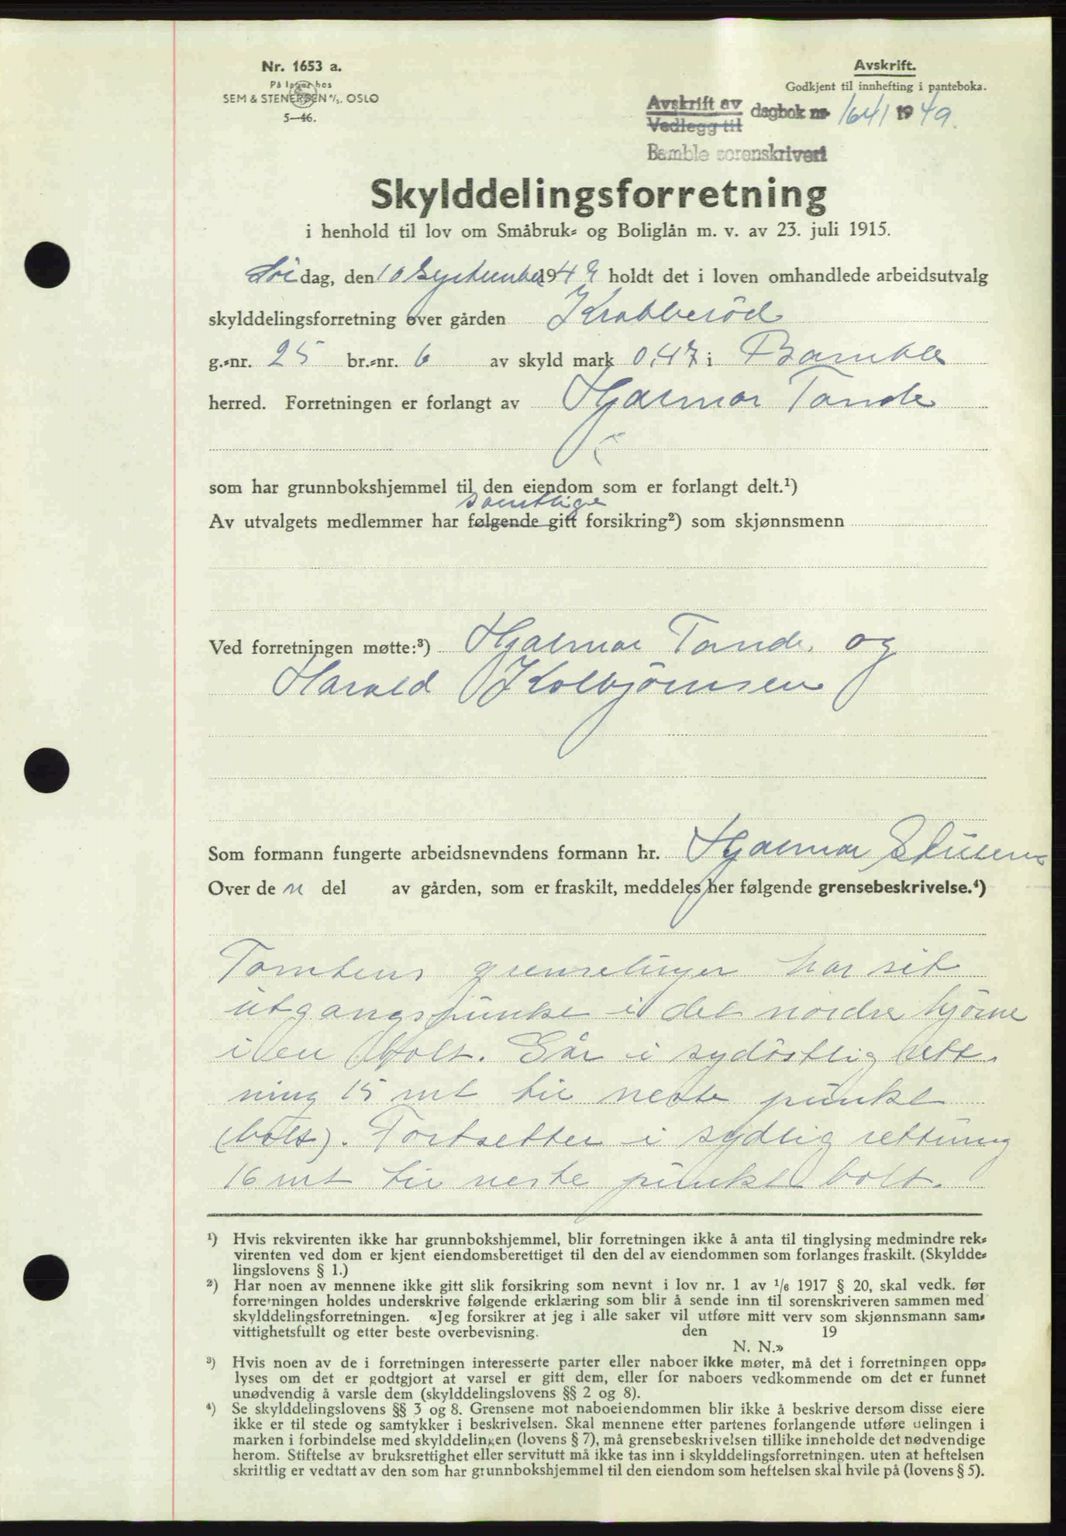 Nr. 1653 a.
På lager hos
SEM & STENERSEN A/S. OSLO
5—46.
Avskrift.
Godkjent til innhefting i panteboka.
Avskrift av
Vedlegg til
dagbok nr 1641 1949.
Bamble sorenskriveri
Skylddelingsforretning
i henhold til lov om Småbruk- og Boliglån m. v. av 23. juli 1915.
dag, den 10 September 1949 holdt det i loven omhandlede arbeidsutvalg
skylddelingsforretning over gården Krabberöd
g.-nr. 25 br.-nr. 6 av skyld mark 0,47 i Bamble
herred. Forretningen er forlangt av Hjalmar Tande
som har grunnbokshjemmel til den eiendom som er forlangt delt.¹)
samtlige
Av utvalgets medlemmer har følgende gitt forsikring²) som skjønnsmenn
Ved forretningen møtte:³) Hjalmar Tande og
Harald Kolbjörnsen
Som formann fungerte arbeidsnevndens formann hr. Hjalmar
Over de n del av gården, som er fraskilt, meddeles her følgende grensebeskrivelse.⁴)
Tomtens grenselinjer har sit
utgangspunkt i det nordre hjörne
i en bolt. Går i sydöstlig rett-
ning 15 mt til neste punkt
(bolt). Fortsetter i sydlig rettning
16 mt til neste punkt bolt.
¹) Hvis rekvirenten ikke har grunnbokshjemmel, blir forretningen ikke å anta til tinglysing medmindre rek-
virenten ved dom er kjent eiendomsberettiget til den del av eiendommen som forlanges fraskilt. (Skyldde-
lingslovens § 1.)
²) Har noen av mennene ikke gitt slik forsikring som nevnt i lov nr. 1 av 1/6 1917 § 20, skal vedk. før
forretningen holdes underskrive følgende erklæring som blir å sende inn til sorenskriveren sammen med
skylddelingsforretningen. «Jeg forsikrer at jeg i alle saker vil utføre mitt verv som skjønnsmann sam-
vittighetsfullt og etter beste overbevisning. den 19
N. N.»
³) Hvis noen av de i forretningen interesserte parter eller naboer ikke møter, må det i forretningen opp-
lyses om det er godtgjort at varsel er gitt dem, eller for naboers vedkommende om det er funnet
unødvendig å varsle dem (skylddelingslovens §§ 2 og 8).
⁴) Se skylddelingslovens §§ 3 og 8. Grensene mot naboeiendommen blir ikke å beskrive dersom disse eiere
ikke er til stede og samtykker i beskrivelsen. Skal mennene etter partenes forlangende utføre delingen i
marken i forbindelse med skylddelingen (lovens § 7), må grensebeskrivelsen tillike inneholde det nødvendige
herom. Stiftelse av bruksrettighet eller servitutt må ikke tas inn i skylddelingsforretningen. uten at heftelsen
skriftlig er vedtatt av den som har grunnbokshjemmel til den eiendom som heftelsen skal hvile på (lovens § 5).